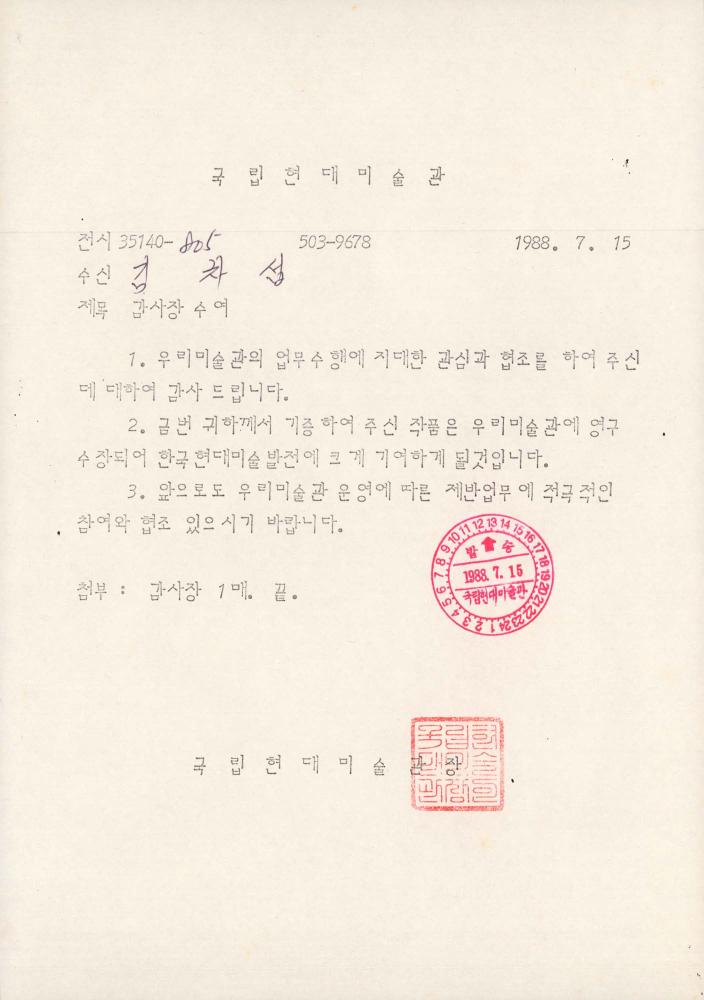 국 립 현 대 미 술 관
전시 35140-805 503-9678 1988. 7. 15
수신 김 차 섭
제목 감사장 수여
1. 우리미술관의 업무수행에 지대한 관심과 협조를 하여 주신
데 대하여 감사 드립니다.
2. 금번 귀하께서 기증하여 주신 작품은 우리미술관에 영구
수장되어 한국현대미술발전에 크게 기여하게 될것입니다.
3. 앞으로도 우리미술관 운영에 따른 제반업무에 적극적인
참여와 협조 있으시기 바랍니다.
1 2 3 4 5 6 7 8 9 10 11 12 13 14 15 16 17 18 19 20 21 22 23 24
발 송
1988. 7. 15
국립현대미술관
첨부 : 감사장 1매. 끝.
국 립 현 대 미 술 관 장